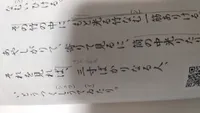 その竹の中に、もと光る竹なむ一筋ありける。
あやしがりて、寄りて見るに、筒の中光りたり。
それを見れば、三寸ばかりなる人、
いとうつくしうてゐたり。